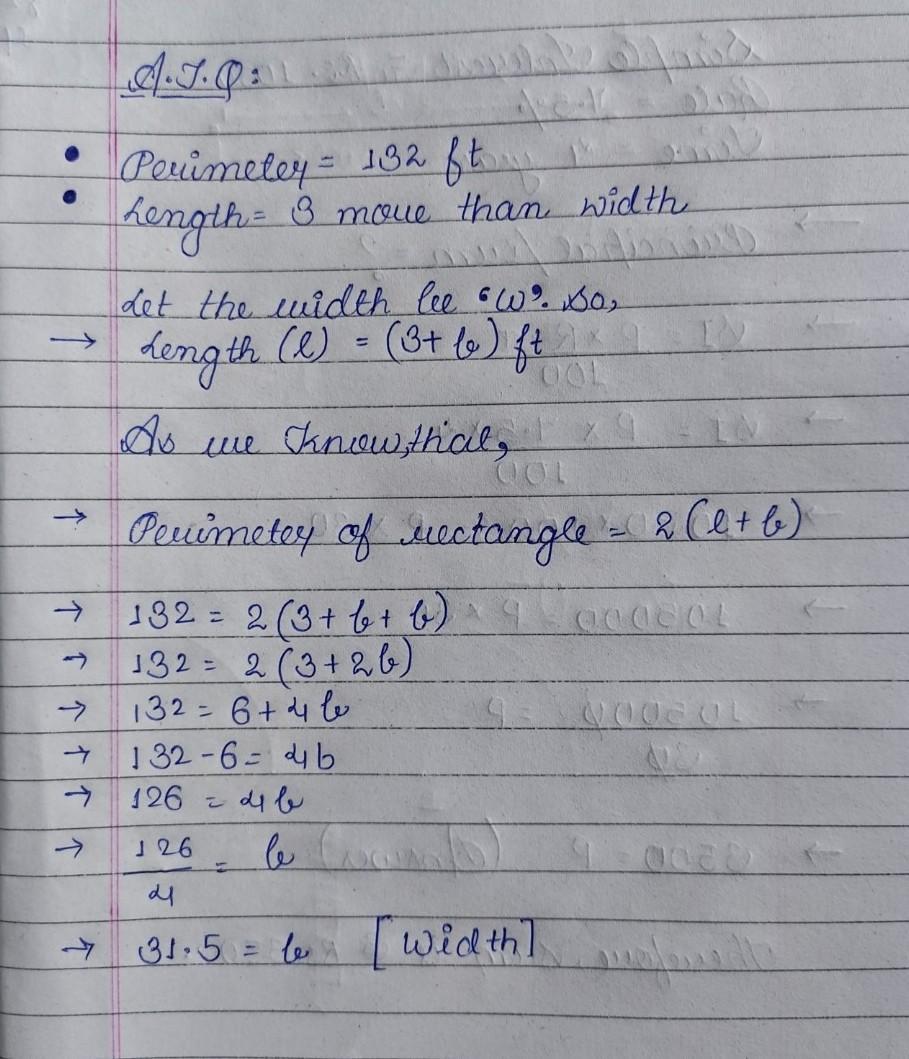 A.T.Q:
Perimeter = 132 ft
Length = 3 more than width
Let the width be "w". So,
→ Length (l) = (3+b) ft
As we know, that,
→ Perimeter of rectangle = 2(l+b)
→ 132 = 2(3+b+b)
→ 132 = 2(3+2b)
→ 132 = 6+4b
→ 132-6 = 4b
→ 126 = 4b
→ 126/4 = b
→ 31.5 = b [Width]